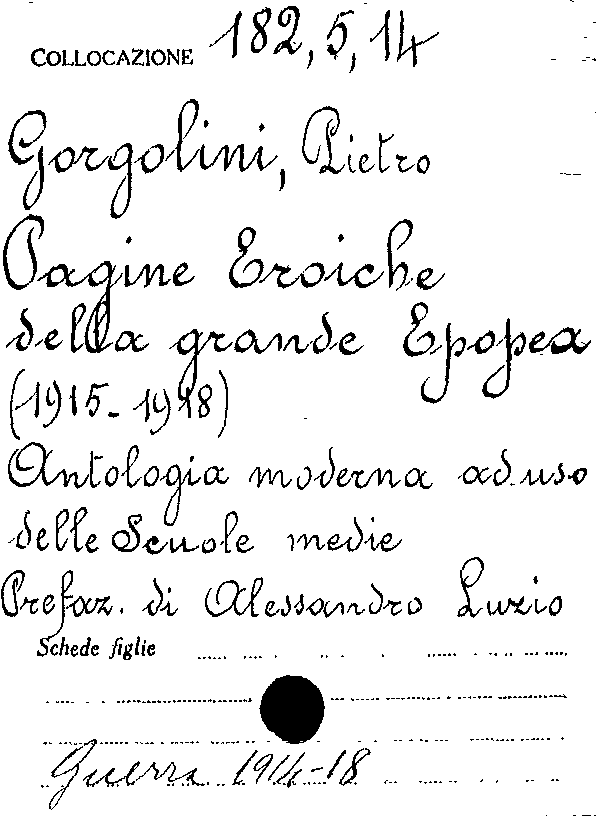 COLLOCAZIONE 182,5,14
Gorgolini, Pietro
Pagine Eroiche
della grande Epopea
(1915-1918)
Antologia moderna ad uso
delle Scuole medie
Prefaz. di Alessandro Luzio
Schede figlie
Guerra 1914-18